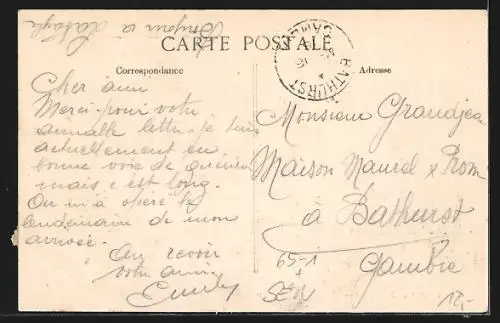 Bonjour à
CARTE POSTALE
Correspondance
Adresse
BATHURST
Cher ami
Merci pour votre
aimable lettre je suis
actuellement en
bonne voie de guérison
mais c'est long.
On m'a opéré le
lendemain de mon
arrivée.
Au revoir
votre ami
Monsieur Grandjean
Maison Maurel & Prom
à Bathurst
Gambie
65-1
+
SEN
12,-